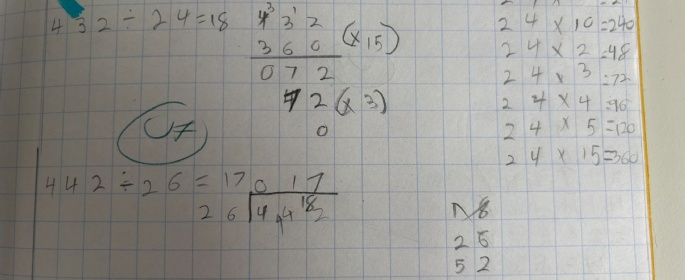 432 ÷ 24 = 18
432
360 (x15)
072
72 (x3)
0
24 x 10 = 240
24 x 2 = 48
24 x 3 = 72
24 x 4 = 96
24 x 5 = 120
24 x 15 = 360
442 ÷ 26 = 17
017
26 4 4 18 2
26
52